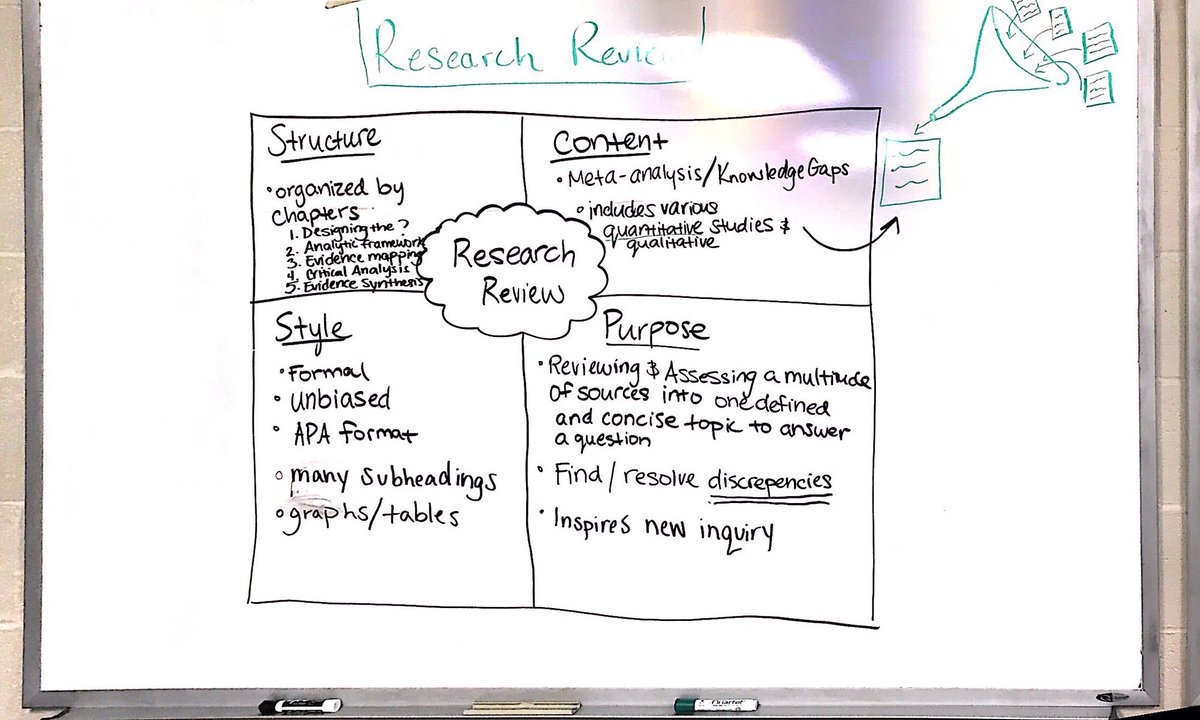 Research Review
Structure
• organized by
chapters
1. Designing the ?
2. Analytic framework
3. Evidence mapping
4. Critical Analysis
5. Evidence Synthesis
Content
• Meta-analysis/Knowledge Gaps
• includes various
quantitative studies &
qualitative
Research
Review
Style
• Formal
• Unbiased
• APA format
• many subheadings
• graphs/tables
Purpose
• Reviewing & Assessing a multitude
of sources into one defined
and concise topic to answer
a question
• Find/resolve discrepencies
• Inspires new inquiry